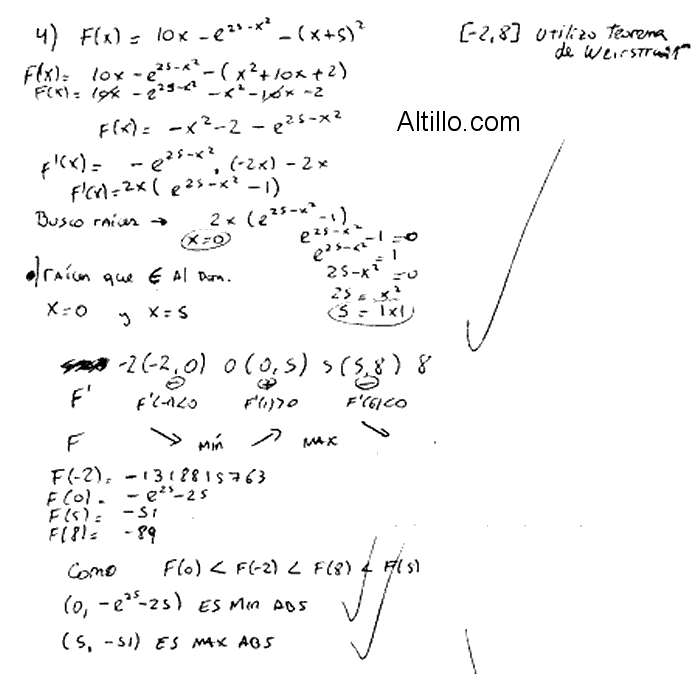 4) F(x) = 10x - e^(25-x²) - (x+5)² [-2,8] Utilizo Teorema
de Weirstrass
F(x) = 10x - e^(25-x²) - (x²+10x+2)
F(x) = 10x - e^(25-x²) - x² - 10x - 2
F(x) = -x² - 2 - e^(25-x²)
Altillo.com
F'(x) = - e^(25-x²) . (-2x) - 2x
F'(x) = 2x ( e^(25-x²) - 1)
Busco raíces → 2x (e^(25-x²) - 1)
x=0 e^(25-x²) - 1 = 0
e^(25-x²) = 1
raíces que ∈ Al Dom. 25 - x² = 0
25 = x²
x=0 y x=5 5 = |x|
-2 (-2,0) 0 (0,5) 5 (5,8) 8
- + -
F' F'(-1)<0 F'(1)>0 F'(6)<0
F ↘ MÍN ↗ MAX ↘
F(-2) = -1318815763
F(0) = -e^25-25
F(5) = -51
F(8) = -89
Como F(0) < F(-2) < F(8) < F(5)
(0, -e^25-25) ES Min ABS
(5, -51) ES MAX ABS